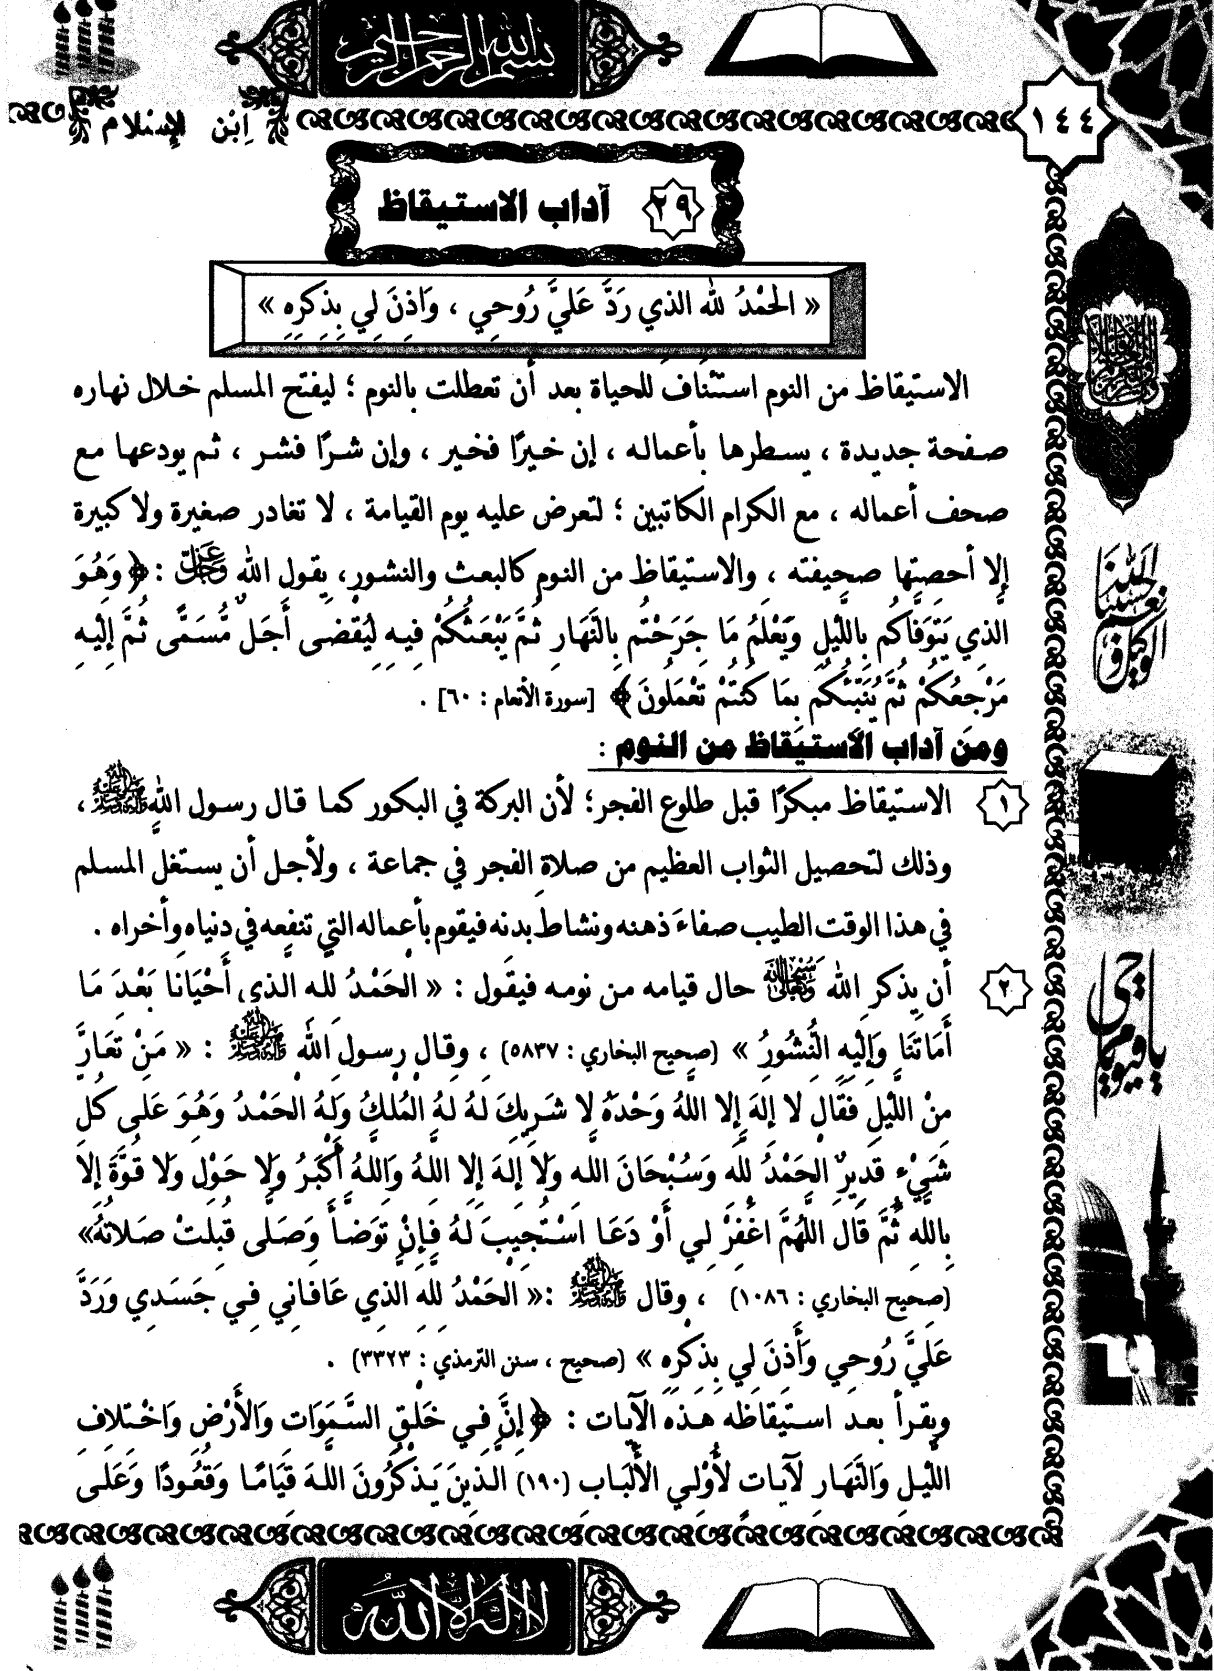 بسم الله الرحمن الرحيم
ابْن الإسْلام
١٤٤
٢٩ آداب الاستيقاظ
« الحَمْدُ لله الذي رَدَّ عَليَّ رُوحِي ، وَأذِنَ لي بِذكرِهِ »
الاستيقاظ من النوم استئناف للحياة بعد أن تعطلت بالنوم ؛ ليفتح المسلم خلال نهاره
صفحة جديدة ، يسطرها بأعماله ، إن خيرًا فخير ، وإن شرًا فشر ، ثم يودعها مع
صحف أعماله ، مع الكرام الكاتبين ؛ لتعرض عليه يوم القيامة ، لا تغادر صغيرة ولا كبيرة
إلا أحصتها صحيفته ، والاستيقاظ من النوم كالبعث والنشور، يقول الله عَزَّ وَجَلَّ : ﴿ وَهُوَ
الَّذِي يَتَوَفَّاكُم بِاللَّيْلِ وَيَعْلَمُ مَا جَرَحْتُم بِالنَّهَارِ ثُمَّ يَبْعَثُكُمْ فِيهِ لِيُقْضَى أَجَلٌ مُّسَمًّى ثُمَّ إِلَيْهِ
مَرْجِعُكُمْ ثُمَّ يُنَبِّئُكُم بِمَا كُنتُمْ تَعْمَلُونَ ﴾ [سورة الأنعام : ٦٠] .
ومن آداب الاستيقاظ من النوم :
١ الاستيقاظ مبكرًا قبل طلوع الفجر؛ لأن البركة في البكور كما قال رسول الله ﷺ ،
وذلك لتحصيل الثواب العظيم من صلاة الفجر في جماعة ، ولأجل أن يستغل المسلم
في هذا الوقت الطيب صفاءَ ذهنه ونشاط بدنه فيقوم بأعماله التي تنفعه في دنياه وأخراه .
٢ أن يذكر الله سُبْحَانَهُ وَتَعَالَىٰ حال قيامه من نومه فيقول : « الحَمْدُ لله الذي أَحْيَانا بَعْدَ مَا
أَمَاتَنَا وَإِلَيْهِ النُّشُورُ » (صحيح البخاري : ٥٨٣٧) ، وقال رسول الله ﷺ : « مَنْ تَعَارَّ
مِنْ اللَّيْلِ فَقَالَ لا إلهَ إلا اللهُ وَحْدَهُ لا شَرِيكَ لهُ لهُ المُلكُ وَلهُ الحَمْدُ وَهُوَ عَلى كُلِّ
شَيْءٍ قدِيرٌ الحَمْدُ لله وَسُبْحَانَ الله وَلا إلهَ إلا اللهُ وَاللهُ أَكْبَرُ وَلا حَوْلَ وَلا قوَّةَ إلا
بِالله ثُمَّ قَال اللَّهُمَّ اغْفِرْ لِي أَوْ دَعَا اسْتُجِيبَ لهُ فَإِنْ تَوَضأَ وَصَلى قُبِلتْ صَلاتُهُ»
(صحيح البخاري : ١٠٨٦) ، وقال ﷺ :« الحَمْدُ للهِ الذِي عَافانِي فِي جَسَدِي وَرَدَّ
عَليَّ رُوحِي وَأَذِنَ لي بِذكرِهِ » (صحيح ، سنن الترمذي : ٣٣٢٣) .
ويقرأ بعد استيقاظه هذه الآيات : ﴿ إِنَّ فِي خَلقِ السَّمَوَاتِ وَالأَرْضِ وَاخْتِلافِ
اللَّيْلِ وَالنَّهَارِ لآيَاتٍ لأُوْلِي الأَلْبَابِ (١٩٠) الذِينَ يَذْكُرُونَ اللهَ قِيَامًا وَقُعُودًا وَعَلى
حسبنا الله ونعم الوكيل
يا حي يا قيوم
لا إله إلا الله